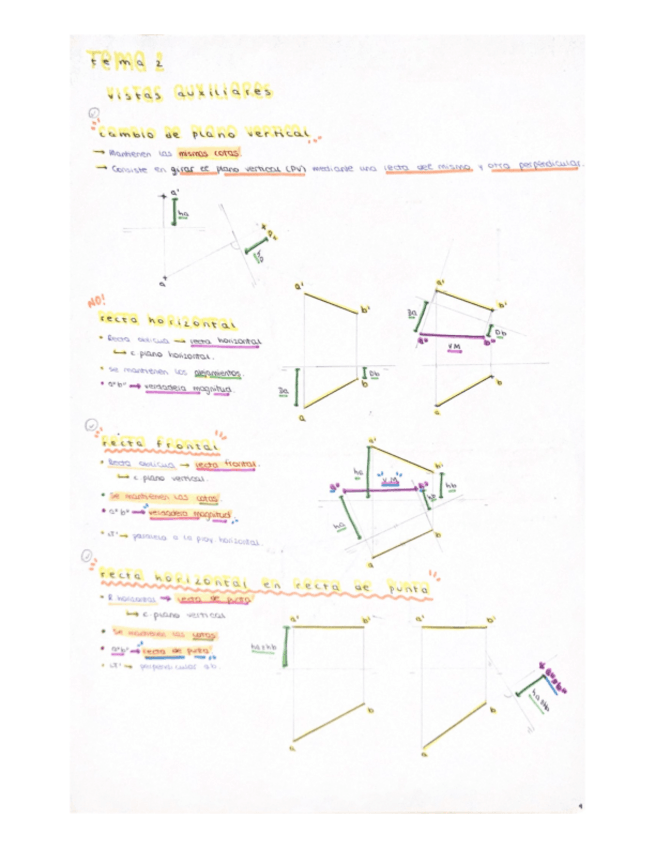 Tema 2
vistas auxiliares
cambio de plano vertical
→ Mantienen las mismas cotas.
→ Consiste en girar el plano vertical (PV) mediante una recta del mismo y otra perpendicular.
a'
ha
a
NO!
recta horizontal
• Recta oblicua → recta horizontal
↳ c. plano horizontal.
• se mantienen los alejamientos.
• a"b" → verdadera magnitud.
a'
b'
Da
Db
b
a
a'
b'
Da
Db
a"
b"
VM
b
a
recta frontal
• Recta oblicua → recta frontal.
↳ c. plano vertical.
• se mantienen las cotas
• a"b" → verdadera magnitud
horizontal.
a'
b'
ha
hb
V.M
ha
b
a
recta horizontal en recta de punta
• R. horizontal → recta de punta
↳ c. plano vertical
• Se mantienen las cotas
• a"b" → recta de punta
perpendicular ab.
a'
b'
b
a
a'
b'
b
a